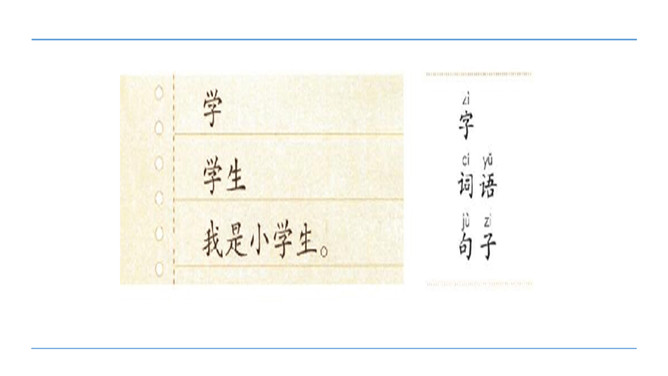 学
学生
我是小学生。
zì
字
cí yǔ
词语
jù zi
句子